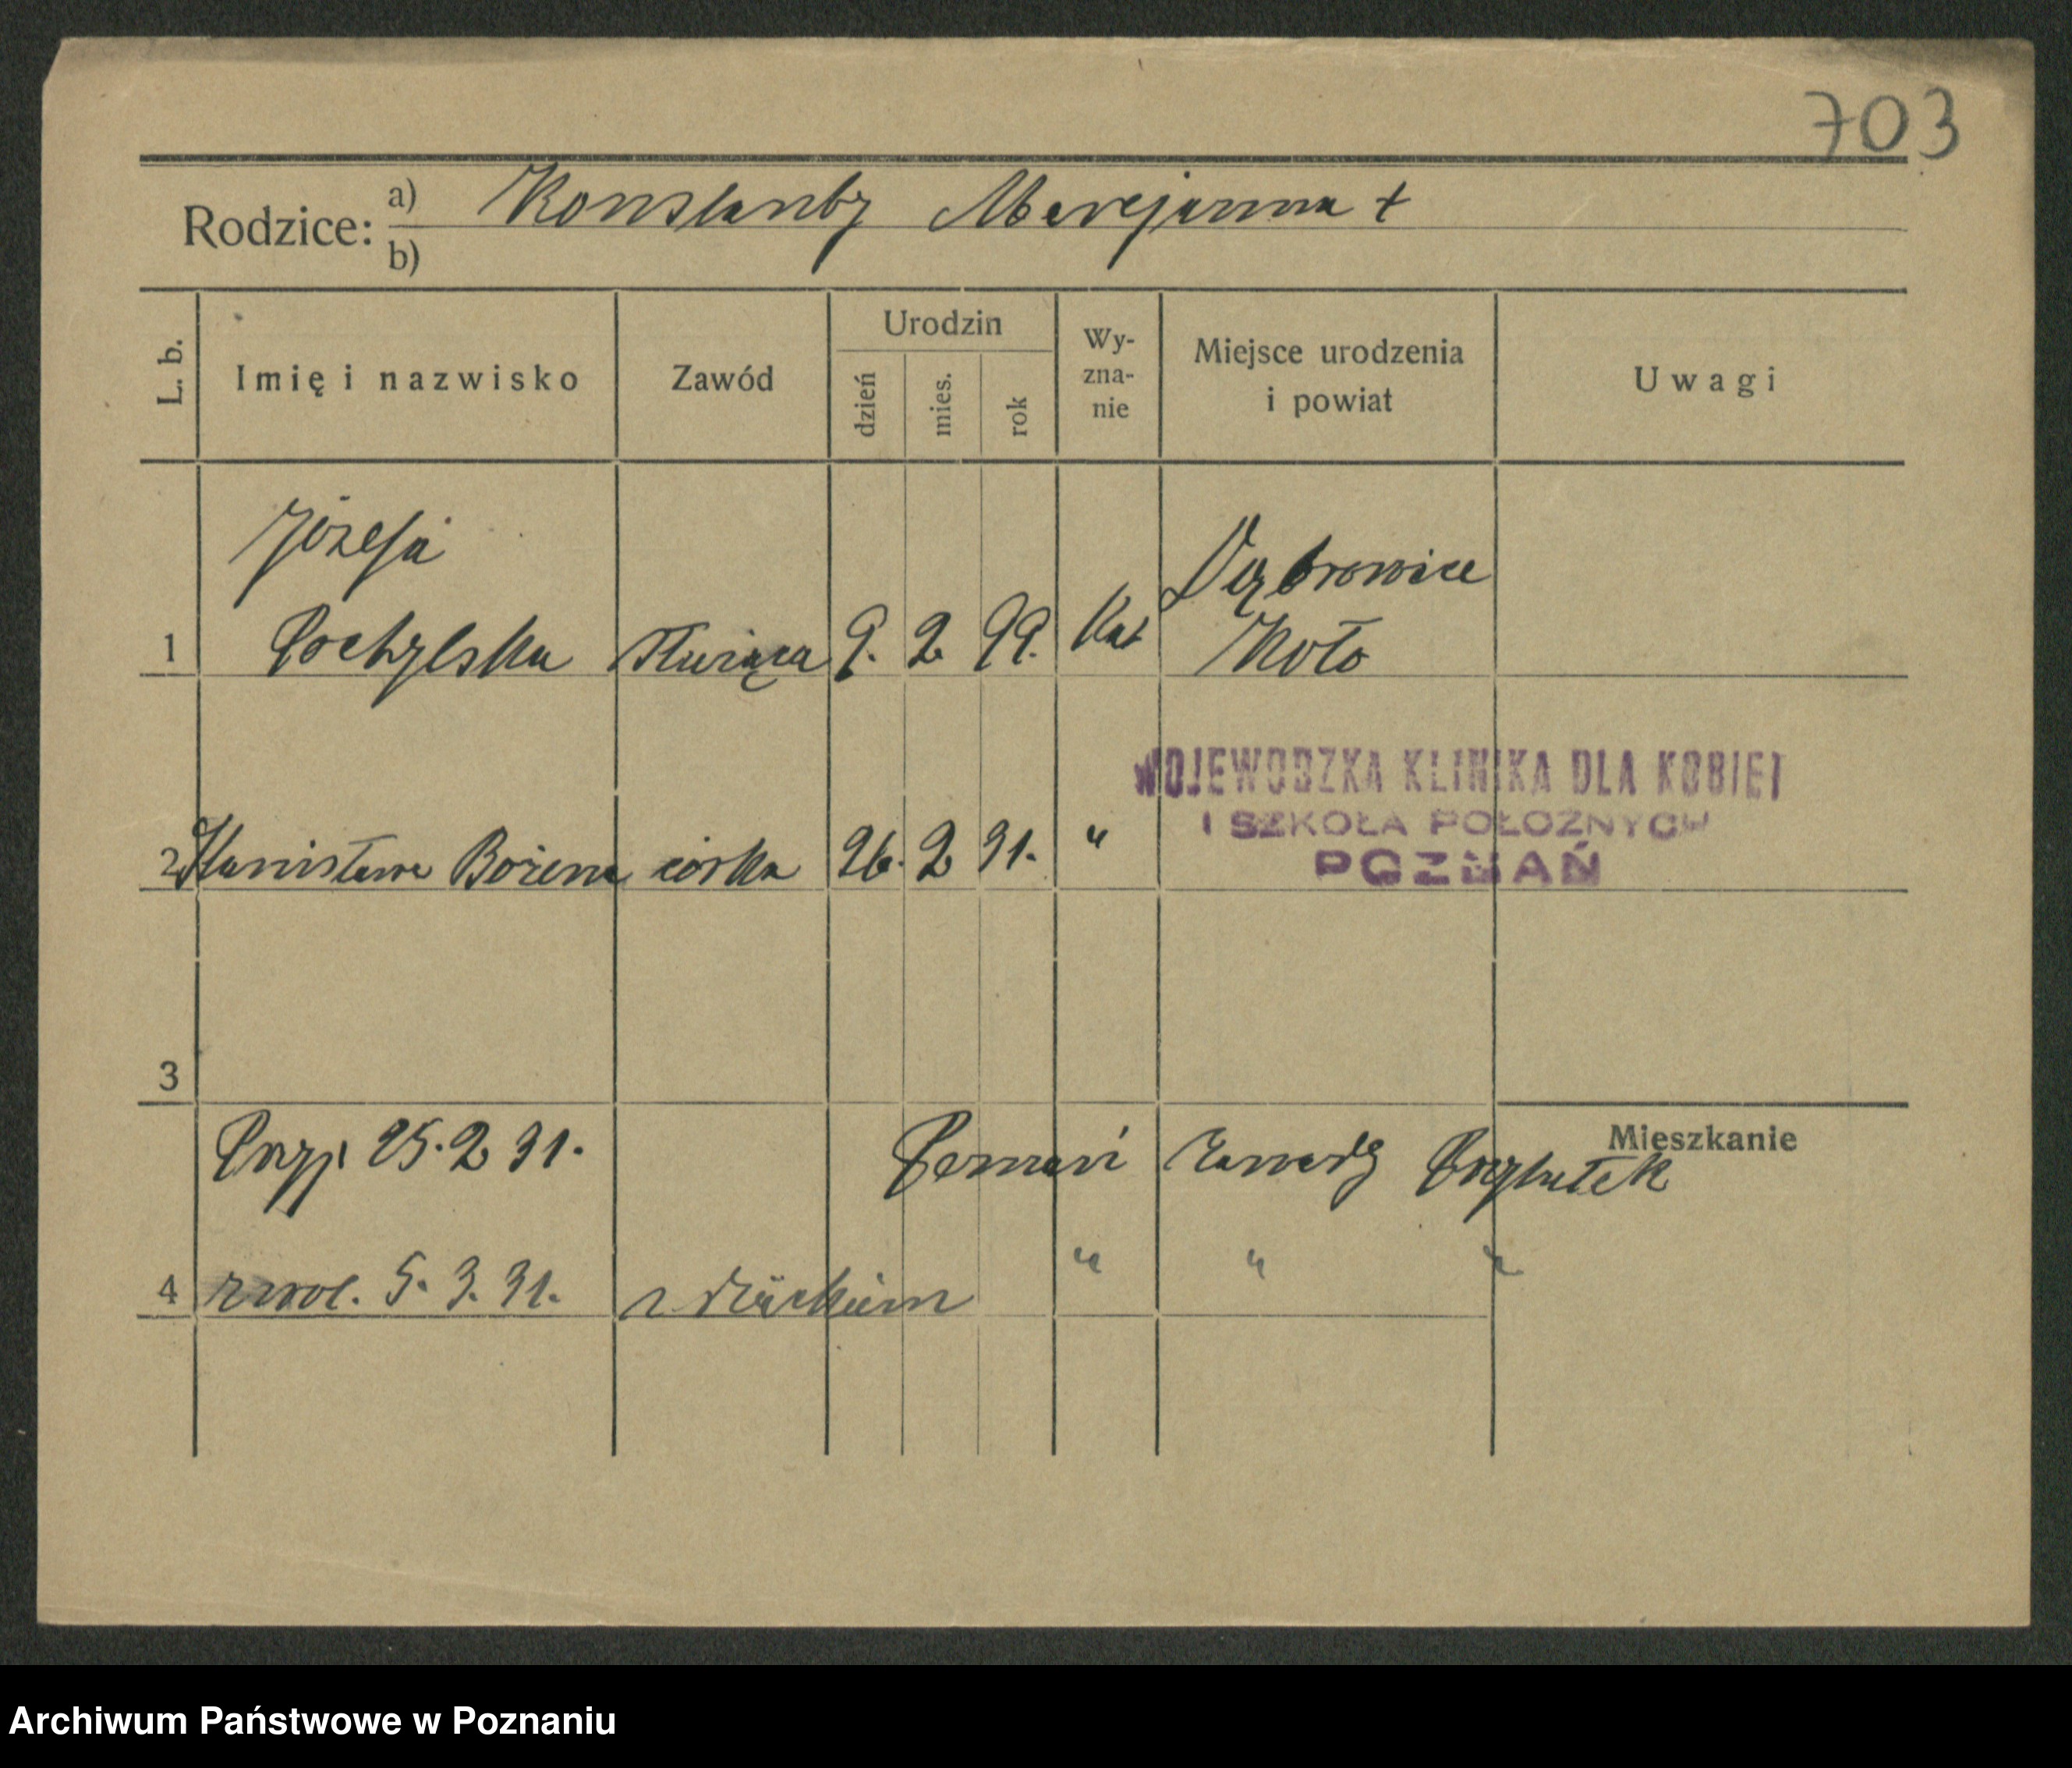 703
Rodzice: a) Konstanty Maryjanna +
b)
L. b. Imię i nazwisko Zawód Urodzin dzień mies. rok Wy-zna-nie Miejsce urodzenia i powiat Uwagi
Józefa Dąbrowice
1 Pochylska służąca 9. 2 99. Kat Koło
WOJEWODZKA KLINIKA DLA KOBIET
I SZKOŁA POŁOŻNYCH
POZNAŃ
2 Stanisława Bożena córka 26. 2 31. "
3
Mieszkanie
Przyj. 25. 2 31. Zawady Przytułek
4 zwol. 5. 3. 31. z dzieckiem " " "
Archiwum Państwowe w Poznaniu